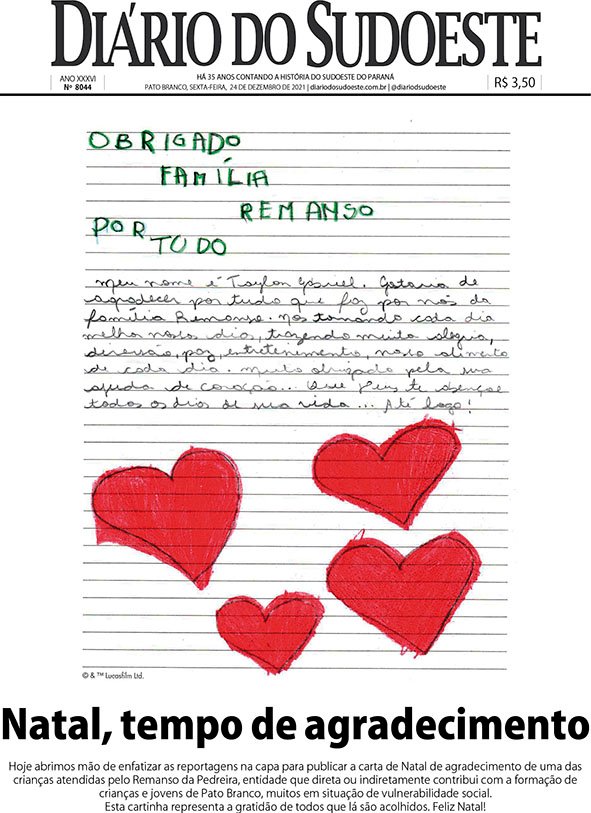 DIÁRIO DO SUDOESTE
ANO XXXVI
Nº 8044
HÁ 35 ANOS CONTANDO A HISTÓRIA DO SUDOESTE DO PARANÁ
PATO BRANCO, SEXTA-FEIRA, 24 DE DEZEMBRO DE 2021 | diariodosudoeste.com.br | @diariodsudoeste
R$ 3,50
OBRIGADO
FAMÍLIA
REMANSO
POR
TUDO
Meu nome é Taylon Gabriel. Gostaria de
agradecer por tudo que faz por nós da
família Remanso. Nos tornando cada dia
melhor nosso dia, trazendo muita alegria,
diversão, paz, entretenimento, nosso alimento
de cada dia. Muito obrigado pela sua
ajuda de coração... Que Deus te abençoe
todos os dias de sua vida... Até logo!
© & ™ Lucasfilm Ltd.
Natal, tempo de agradecimento
Hoje abrimos mão de enfatizar as reportagens na capa para publicar a carta de Natal de agradecimento de uma das
crianças atendidas pelo Remanso da Pedreira, entidade que direta ou indiretamente contribui com a formação de
crianças e jovens de Pato Branco, muitos em situação de vulnerabilidade social.
Esta cartinha representa a gratidão de todos que lá são acolhidos. Feliz Natal!